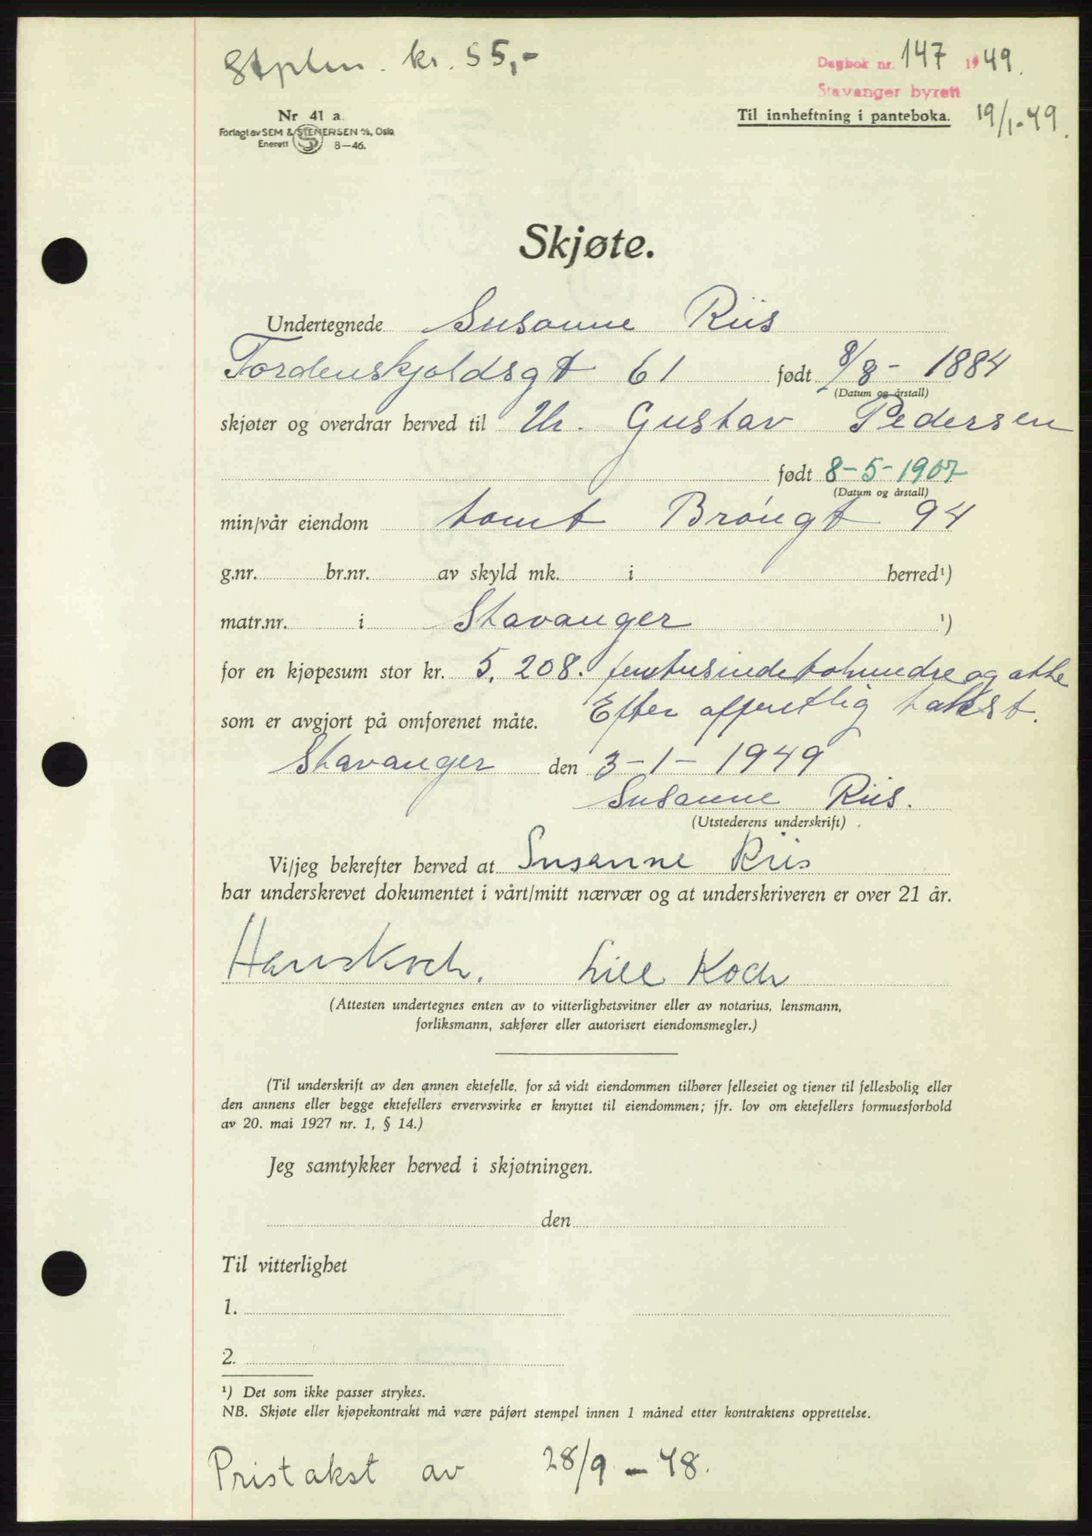 Stplm. kr. 55,-
Dagbok nr. 147 1949.
Stavanger byrett
Nr 41 a.
Til innheftning i panteboka. 19/1-49.
Forlagt av SEM & STENERSEN A/S, Oslo
Enerett S 8—46.
Skjøte.
Undertegnede Susanne Riis
Tordenskjoldsgt 61 født 8/8 - 1884
(Datum og årstall)
skjøter og overdrar herved til Hr. Gustav Pedersen
født 8-5-1907
(Datum og årstall)
min/vår eiendom tomt Brøngt 94
g.nr. br.nr. av skyld mk. i herred¹)
matr.nr. i Stavanger ¹)
for en kjøpesum stor kr. 5.208. femtusindetohundre og otte
som er avgjort på omforenet måte. Efter offentlig takst.
Stavanger den 3-1-1949
Susanne Riis.
(Utstederens underskrift)
Vi/jeg bekrefter herved at Susanne Riis
har underskrevet dokumentet i vårt/mitt nærvær og at underskriveren er over 21 år.
Hans Koch. Lill Koch
(Attesten undertegnes enten av to vitterlighetsvitner eller av notarius, lensmann,
forliksmann, sakfører eller autorisert eiendomsmegler.)
(Til underskrift av den annen ektefelle, for så vidt eiendommen tilhører felleseiet og tjener til fellesbolig eller
den annens eller begge ektefellers ervervsvirke er knyttet til eiendommen; jfr. lov om ektefellers formuesforhold
av 20. mai 1927 nr. 1, § 14.)
Jeg samtykker herved i skjøtningen.
den
Til vitterlighet
1.
2.
¹) Det som ikke passer strykes.
NB. Skjøte eller kjøpekontrakt må være påført stempel innen 1 måned etter kontraktens opprettelse.
Pristakst av 28/9 - 48.